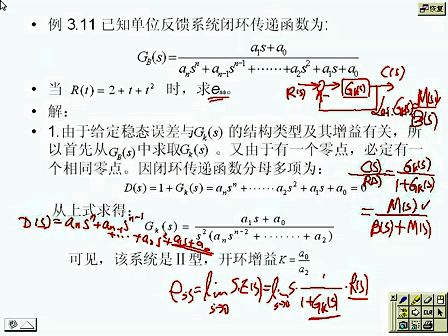 恢复
• 例 3.11 已知单位反馈系统闭环传递函数为:
G_B(s) = (a_1 s + a_0) / (a_n s^n + a_{n-1}^{n-1} + ⋯⋯ + a_2 s^2 + a_1 s + a_0)
• 当 R(t) = 2 + t + t^2 时，求e_ss。
• 解:
• 1.由于给定稳态误差与G_k(s) 的结构类型及其增益有关，所
以首先从G_B(s)中求取G_k(s)。又由于有一个零点，必定有一
个相同零点。因闭环传递函数分母多项为:
D(s) = 1 + G_k(s) = a_n s^n + ⋯⋯ a_2 s^2 + a_1 s + a_0 = 0
从上式求得:
G_k(s) = (a_1 s + a_0) / (s^2 (a_n s^{n-2} + ⋯⋯ + a_2))
可见，该系统是Ⅱ型，开环增益 K = a_0 / a_2
R(s) G_k(s) C(s)
G_k(s) = M(s) / B(s)
C(s) / R(s) = G_k(s) / (1 + G_k(s))
= M(s) / (B(s) + M(s))
D(s) = a_n s^n + a_{n-1} s^{n-1}
+ ⋯ + a_2 s^2 + a_1 s + a_0
e_ss = lim_{s→0} s E(s) = lim_{s→0} s · 1 / (1 + G_k(s)) · R(s)